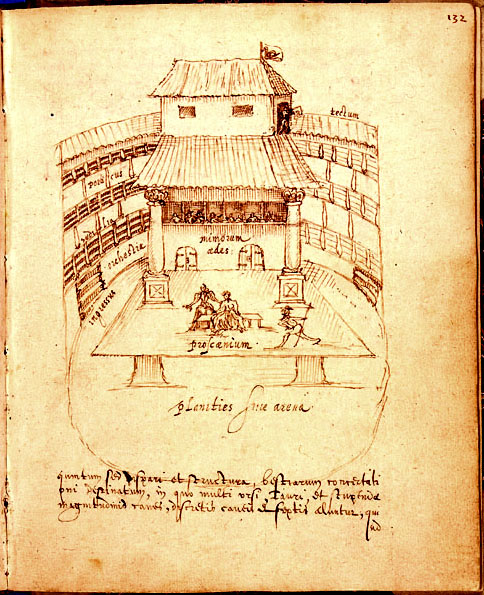 132
tectum
porticus
sedilia
orchestra
ingressus
mimorum
ædes
proscænium
planities sive arena
quintum sed dispari et structura, bestiarum concertati
oni destinatum, in quo multi ursi, tauri, et stupendæ
magnitudinis canes, discretis caueis & septis aluntur, qui
ad